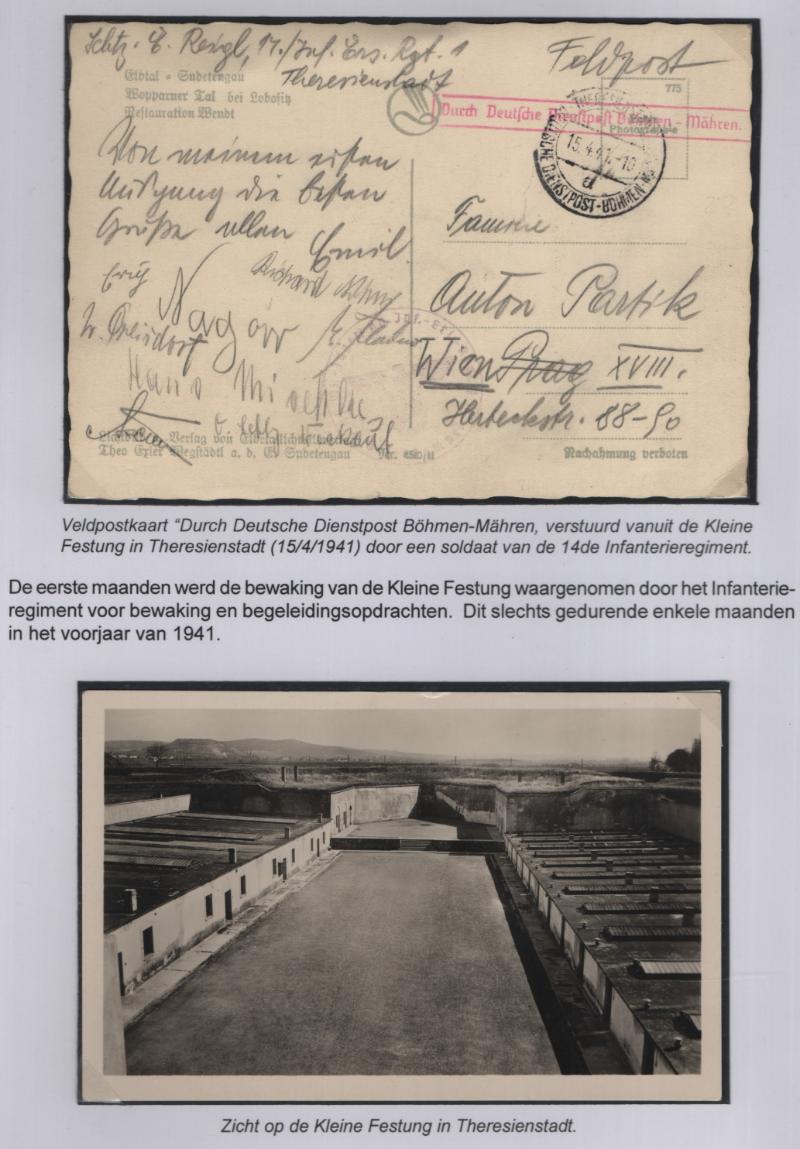 Schtz. E. Reigl, 17./Inf. Ers. Rgt. 1
Theresienstadt
Feldpost
Elbtal - Sudetengau
Wopparner Tal bei Lobositz
Restauration Wendt
775
Durch Deutsche Dienstpost Böhmen-Mähren.
Photographie
15.4.41.-10
a
DEUTSCHE DIENSTPOST-BÖHMEN
Von meinem ersten
Ausgang die besten
Grüße allen Emil.
Erich
Richard
Familie
Anton Partik
Wien Prag XVIII.
Herbeckstr. 88-90
Hans
Verlag von
Theo Exler Wegstädtl a. d. E. Sudetengau
Nachahmung verboten
Veldpostkaart “Durch Deutsche Dienstpost Böhmen-Mähren, verstuurd vanuit de Kleine
Festung in Theresienstadt (15/4/1941) door een soldaat van de 14de Infanterieregiment.
De eerste maanden werd de bewaking van de Kleine Festung waargenomen door het Infanterie-
regiment voor bewaking en begeleidingsopdrachten. Dit slechts gedurende enkele maanden
in het voorjaar van 1941.
Zicht op de Kleine Festung in Theresienstadt.